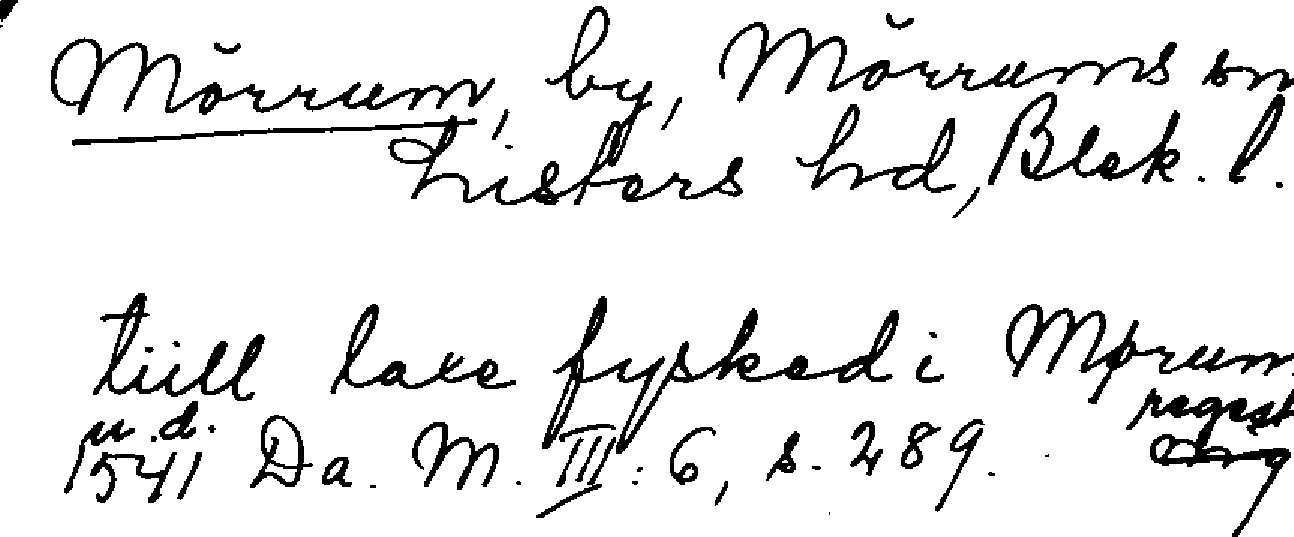 Mörrum, by, Mörrums sn
Listers hd, Blek. l.
tiill laxe fysked i Mørum
u.d. regest
1541 Da. M. III: 6, s. 289.